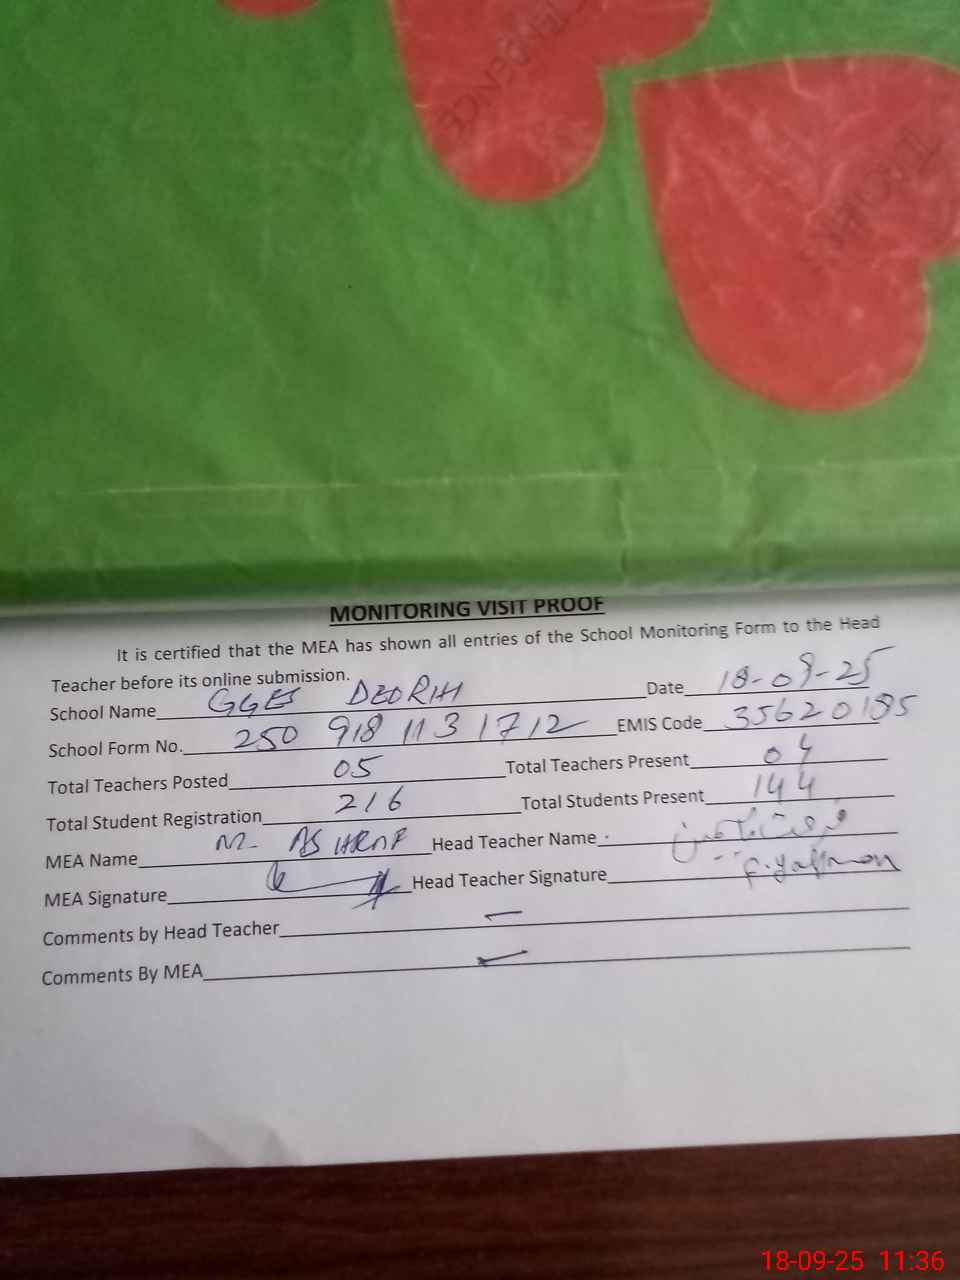 TENDENCE
MONITORING VISIT PROOF
It is certified that the MEA has shown all entries of the School Monitoring Form to the Head
Teacher before its online submission.
School Name GGES DEORHI Date 18-09-25
School Form No. 250 918 113 1712 EMIS Code 35620185
Total Teachers Posted 05 Total Teachers Present 04
Total Student Registration 216 Total Students Present 144
MEA Name M. ASHRAF Head Teacher Name فرحت یاسمین
MEA Signature Head Teacher Signature F. Yasmeen
Comments by Head Teacher –
Comments By MEA –
18-09-25 11:36